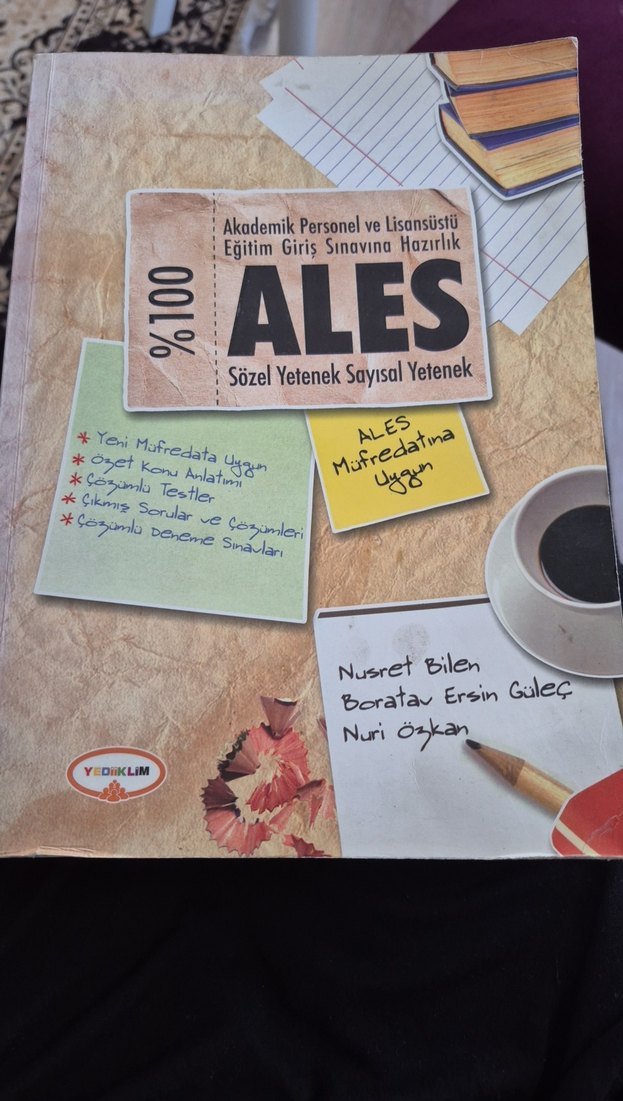 %100
Akademik Personel ve Lisansüstü
Eğitim Giriş Sınavına Hazırlık
ALES
Sözel Yetenek Sayısal Yetenek
* Yeni Müfredata Uygun
* Özet Konu Anlatımı
* Çözümlü Testler
* Çıkmış Sorular ve Çözümleri
* Çözümlü Deneme Sınavları
ALES
Müfredatına
Uygun
Nusret Bilen
Boratav Ersin Güleç
Nuri Özkan
YEDİİKLİM